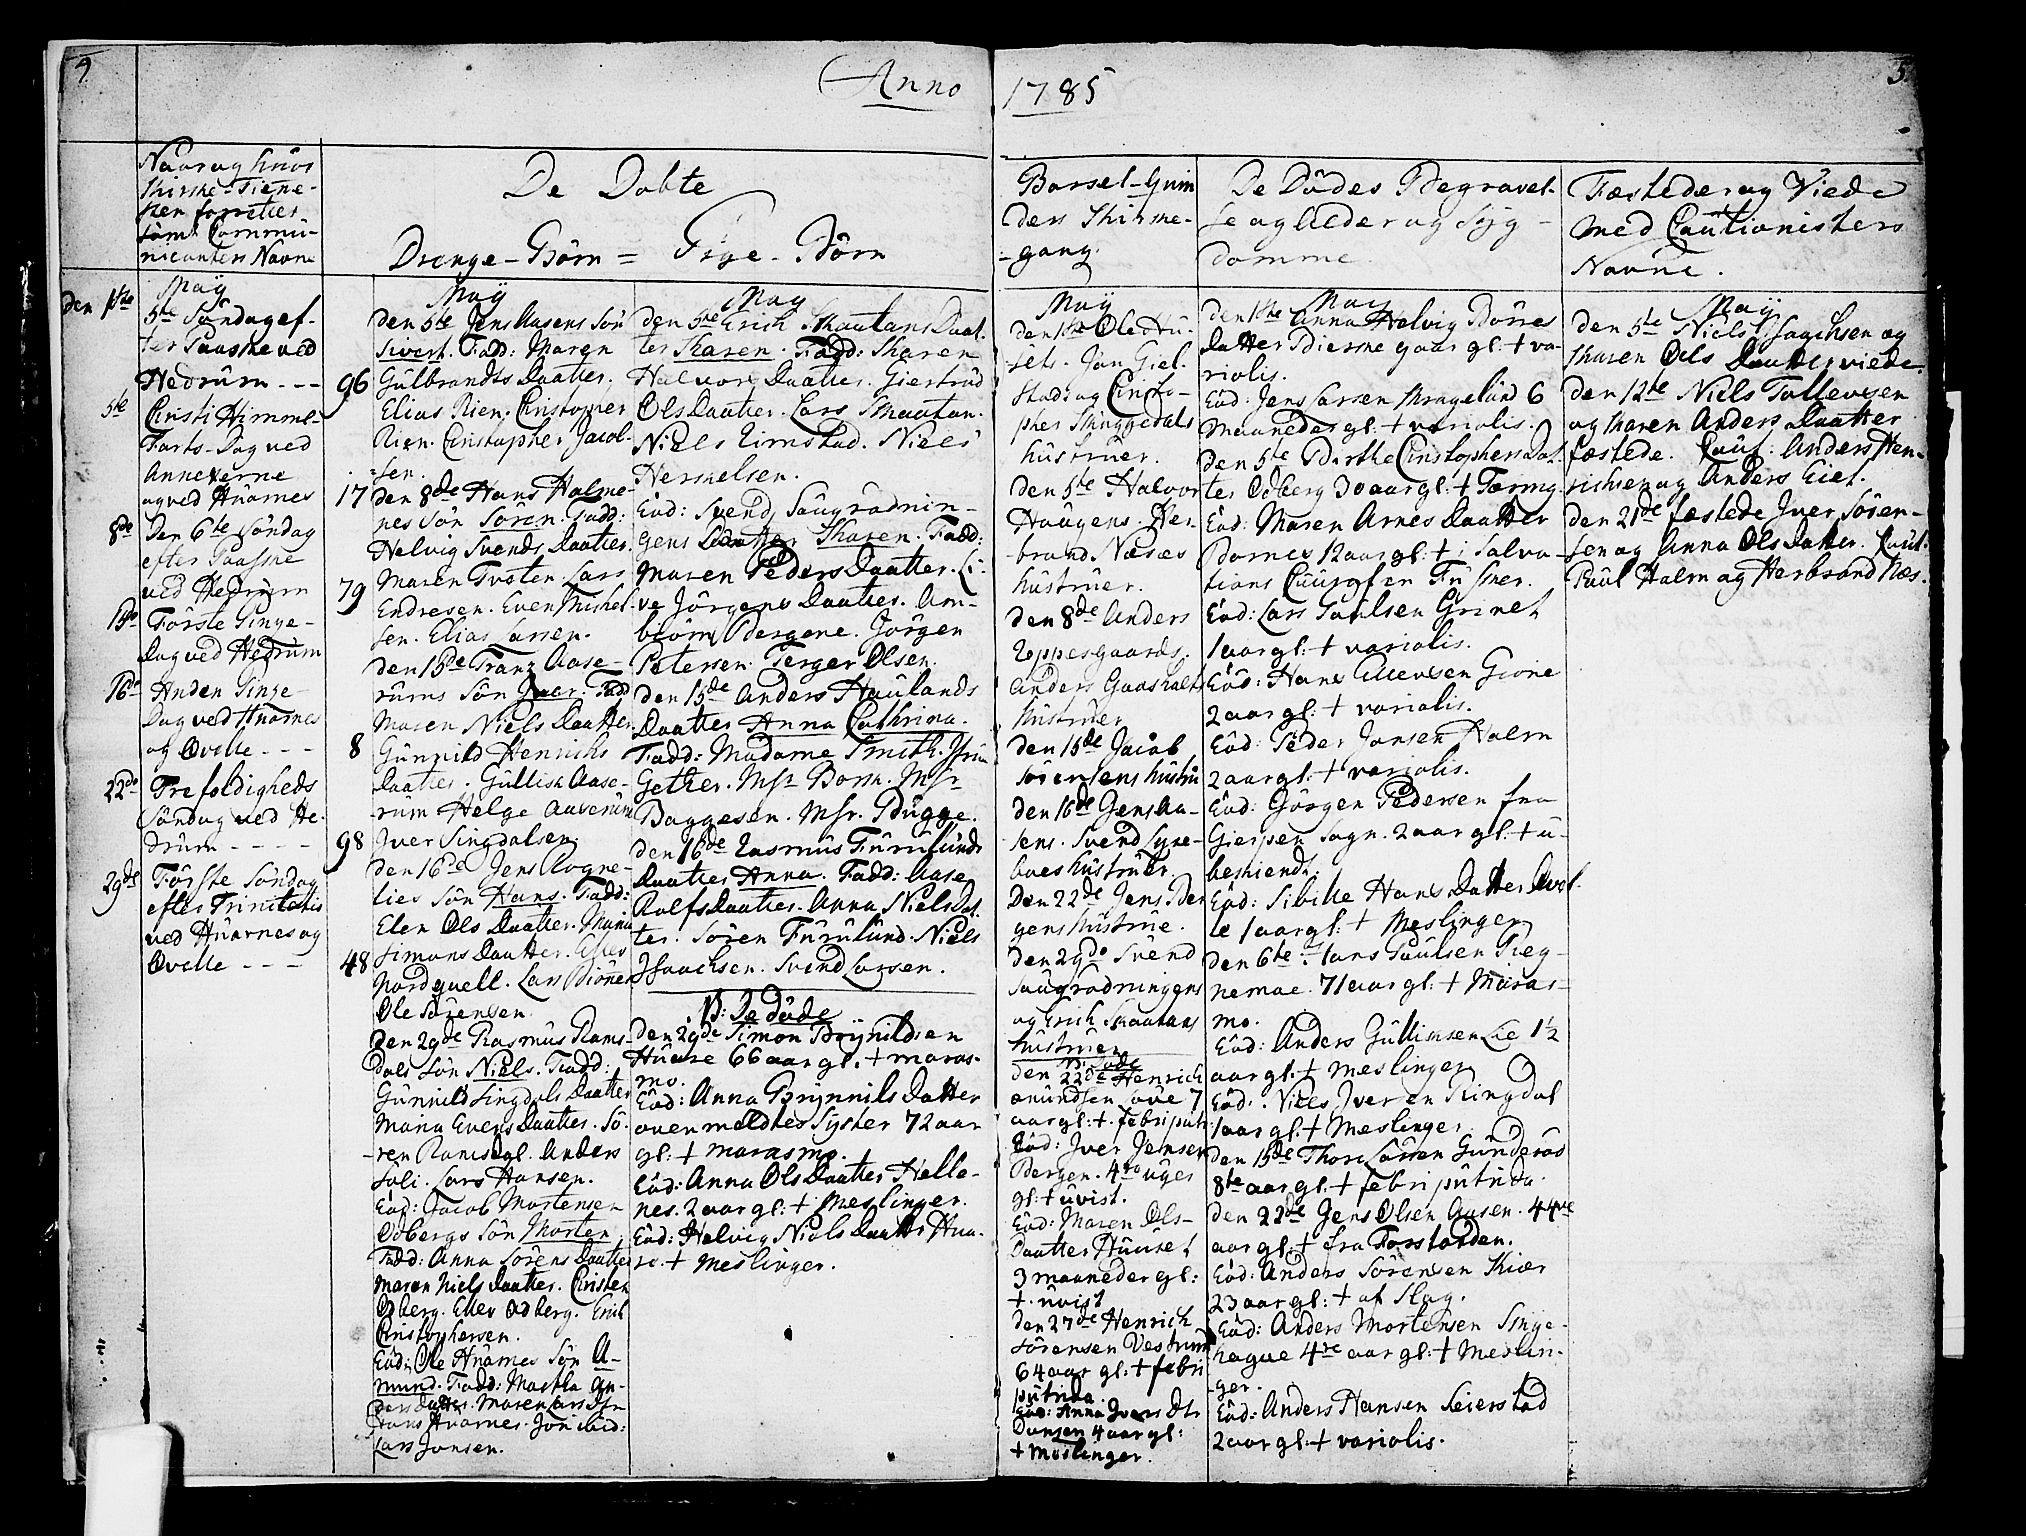 Anno 1785
5
Naar og hvor
Kirke-Tiene-
sten forrettes
samt Commu-
nicanters Navne
De Döbte
Drenge-Börn = Pige-Börn
Barsel-Qvin
ders Kirke-
gang.
De Dödes Begravel-
se og Alder og Syg-
domme.
Fæstede og Viede
med Cautionisters
Navne.
May
den 1ste
5te Söndag ef-
ter Paaske ved
Hedrum - - - 96
5te
Christi Himmel-
Farts-Dag ved
Annexerne
og ved Hvarnes 17
8de Den 6te Söndag
efter Paaske
ved Hedrum 79
15de Förste Pinge-
Dag ved Hedrum
16de Anden Pinge-
Dag ved Hvarnes
og Qvelle - - - 8
22de Trefoldigheds
Söndag ved He-
drum - - - - 98
29de Förste Söndag
efter Trinitatis
ved Hvarnes og
Qvelle - - - 48
May
den 5te Jens Aasens Sön
Sivert. Fadd: Maren
Gulbrands Daatter.
Elias Rien. Christopher
Rien. Christopher Jacob-
sen.
den 8de Hans Holme-
nes Sön Sören. Fadd:
Helvig Svends Daatter.
Maren Lars
Endresen. Even Michel-
sen. Elias Larsen.
den 15de Franz Aase-
rums Sön Iver. Fadd
Maren Niels Daatter
Gunnild Henrichs
Daatter. Gullich Aase-
rum Helge Aaserum
Iver Singdalsen
den 16de Jens
lies Sön Hans. Fadd:
Elen Ols Daatter. Maria
Simons Daatter.
Nordqvell. Lars
Ole Sörensen.
den 29de Rasmus Rams-
dals Sön Niels. Fadd:
Gunnild Singdals Daatter
Maria Evens Daatter. Sö-
ren Ramsdal. Anders
Foli. Lars Hansen.
Eód: Jacob Mortensen
Odbergs Sön Morten
Fadd: Anna Sörens Daatter
Maren Niels Daatter. Christen
Odberg. Ellev Odberg. Erich
Christophersen.
Eód: Ole Hvarnes Sön A-
mund. Fadd: Martha An-
ders Datter. Maren Lars Dtr
Hans Hvarnes. Jon
Lars Jonsen.
May
den 5te Erich Skaatans Daat-
ter Karen. Fadd: Karen
Halvors Daatter. Giertrud
Ols Daatter. Lars Skaatan.
Niels Rimstad. Niels
Herkelsen.
Eód: Svend Saugrödnin-
gens Daatter Karen. Fadd:
Maren Peders Daatter. Li-
ve Jörgens Daatter. Am-
biörn Bergene. Jörgen
Petersen. Terger Olsen.
den 15de Anders Haulands
Daatter Anna Cathrina.
Fadd: Madame Smith. Jfru
Gether. Msr Born. Msr
Baggesen. Msr. Bugge.
den 16de Rasmus Furulunds
Daatter Anna. Fadd: Aase
Rolfs Daatter. Anna Niels Dat-
ter. Sören Furulund. Niels
Isaachsen. Svend Larsen.
N: De döde
den 29de Simon Brynildsen
Huare 66 aar gl: + maras-
mo.
Eód: Anna Brynnils Datter
ovenmeldtes Syster 72 aar
gl: + marasmo.
Eód: Anna Ols Daatter Helle-
nes. 2 aar gl: + Meslinger.
Eód: Helvig Niels Daatter Hua-
re. + Meslinger.
May
den 1ste Ole Hu-
sets. Jon Giel-
stad og Christo-
pher Skinggedals
hustruer.
den 5te Halvor
Haugens Her-
brand Næses
hustruer.
den 8de Anders
Eppesgaards.
Anders Gaasholts
hustruer
den 15de Jacob
Sörensens hustru
den 16de Jens Aa-
sens. Svend Lyse-
boes hustruer.
Den 22de Jens Ber
gens hustrue.
den 29de Svend
Saugrødningens
og Erich Skaatans
hustruer
N: Döde
den 22de Henrich
Amundsen Löve 7
aar gl: + febri putr:
Eód: Iver Jensen
Bergen. 4re uger
gl: + uvist.
Eód: Maren Ols-
Daatter Huuset
3 maaneder gl:
+ uvist
den 27de Henrich
Sörensen Vestrum
64 aar gl: + febri
putrida
Eód: Anna Ivers Dtr
4 aar gl:
+ Meslinger.
May
den 1ste Anna Helvig Börres
Datter Bierke 9 aar gl: + va-
riolis.
Eód: Jens Larsen Kragelund 6
Maaneder gl: + variolis.
den 5te Birthe Christophers Dat-
ter Odberg 30 aar gl: + Tæring
Eód: Maren Arnes Daatter
Barnes 12 aar gl: + i Salva-
tions Cuur for
Eód: Lars Paulsen Grinet
1 aar gl: + variolis.
Eód: Hans Ellevsen Gione
2 aar gl: + variolis.
Eód: Peder Jonsen Holm
2 aar gl: + variolis.
Eód: Jörgen Pedersen fra
Gierpen Sogn. 2 aar gl: + u-
bekiendt.
Eód: Sibille Hans Datter Qvel-
le 1 aar gl: + Meslinger
den 6te Hans Paulsen Preg-
nemae. 71 aar gl: + Maras-
mo.
Eód: Anders Gullicksen Lie 1½
aar gl: + Meslinger
Eód: Niels Iversen Ringdal
1 aar gl: + Meslinger.
den 15de Thore Larsen Gunderöd
8te aar gl: + febri putrida.
den 22de Jens Olsen Aasen. 44re
aar gl: + fra Forstanden.
Eód: Anders Sörensen Kiær
23 aar gl: + af Slag.
Eód: Anders Mortensen Singe-
hague 4re aar gl: + Meslin-
ger.
Eód: Anders Hansen Seierstad
2 aar gl: + variolis.
May
den 5te Niels Isaachsen og
Karen Ols Daatter viede.
den 12te Niels Tollevsen
og Karen Anders Daatter
fæstede. Caut: Anders Hen-
richsen og Anders Eiet.
den 21de fæstede Iver Sören-
sen og Anna Ols Datter. Caut:
Paul Holm og Herbrand Næs.